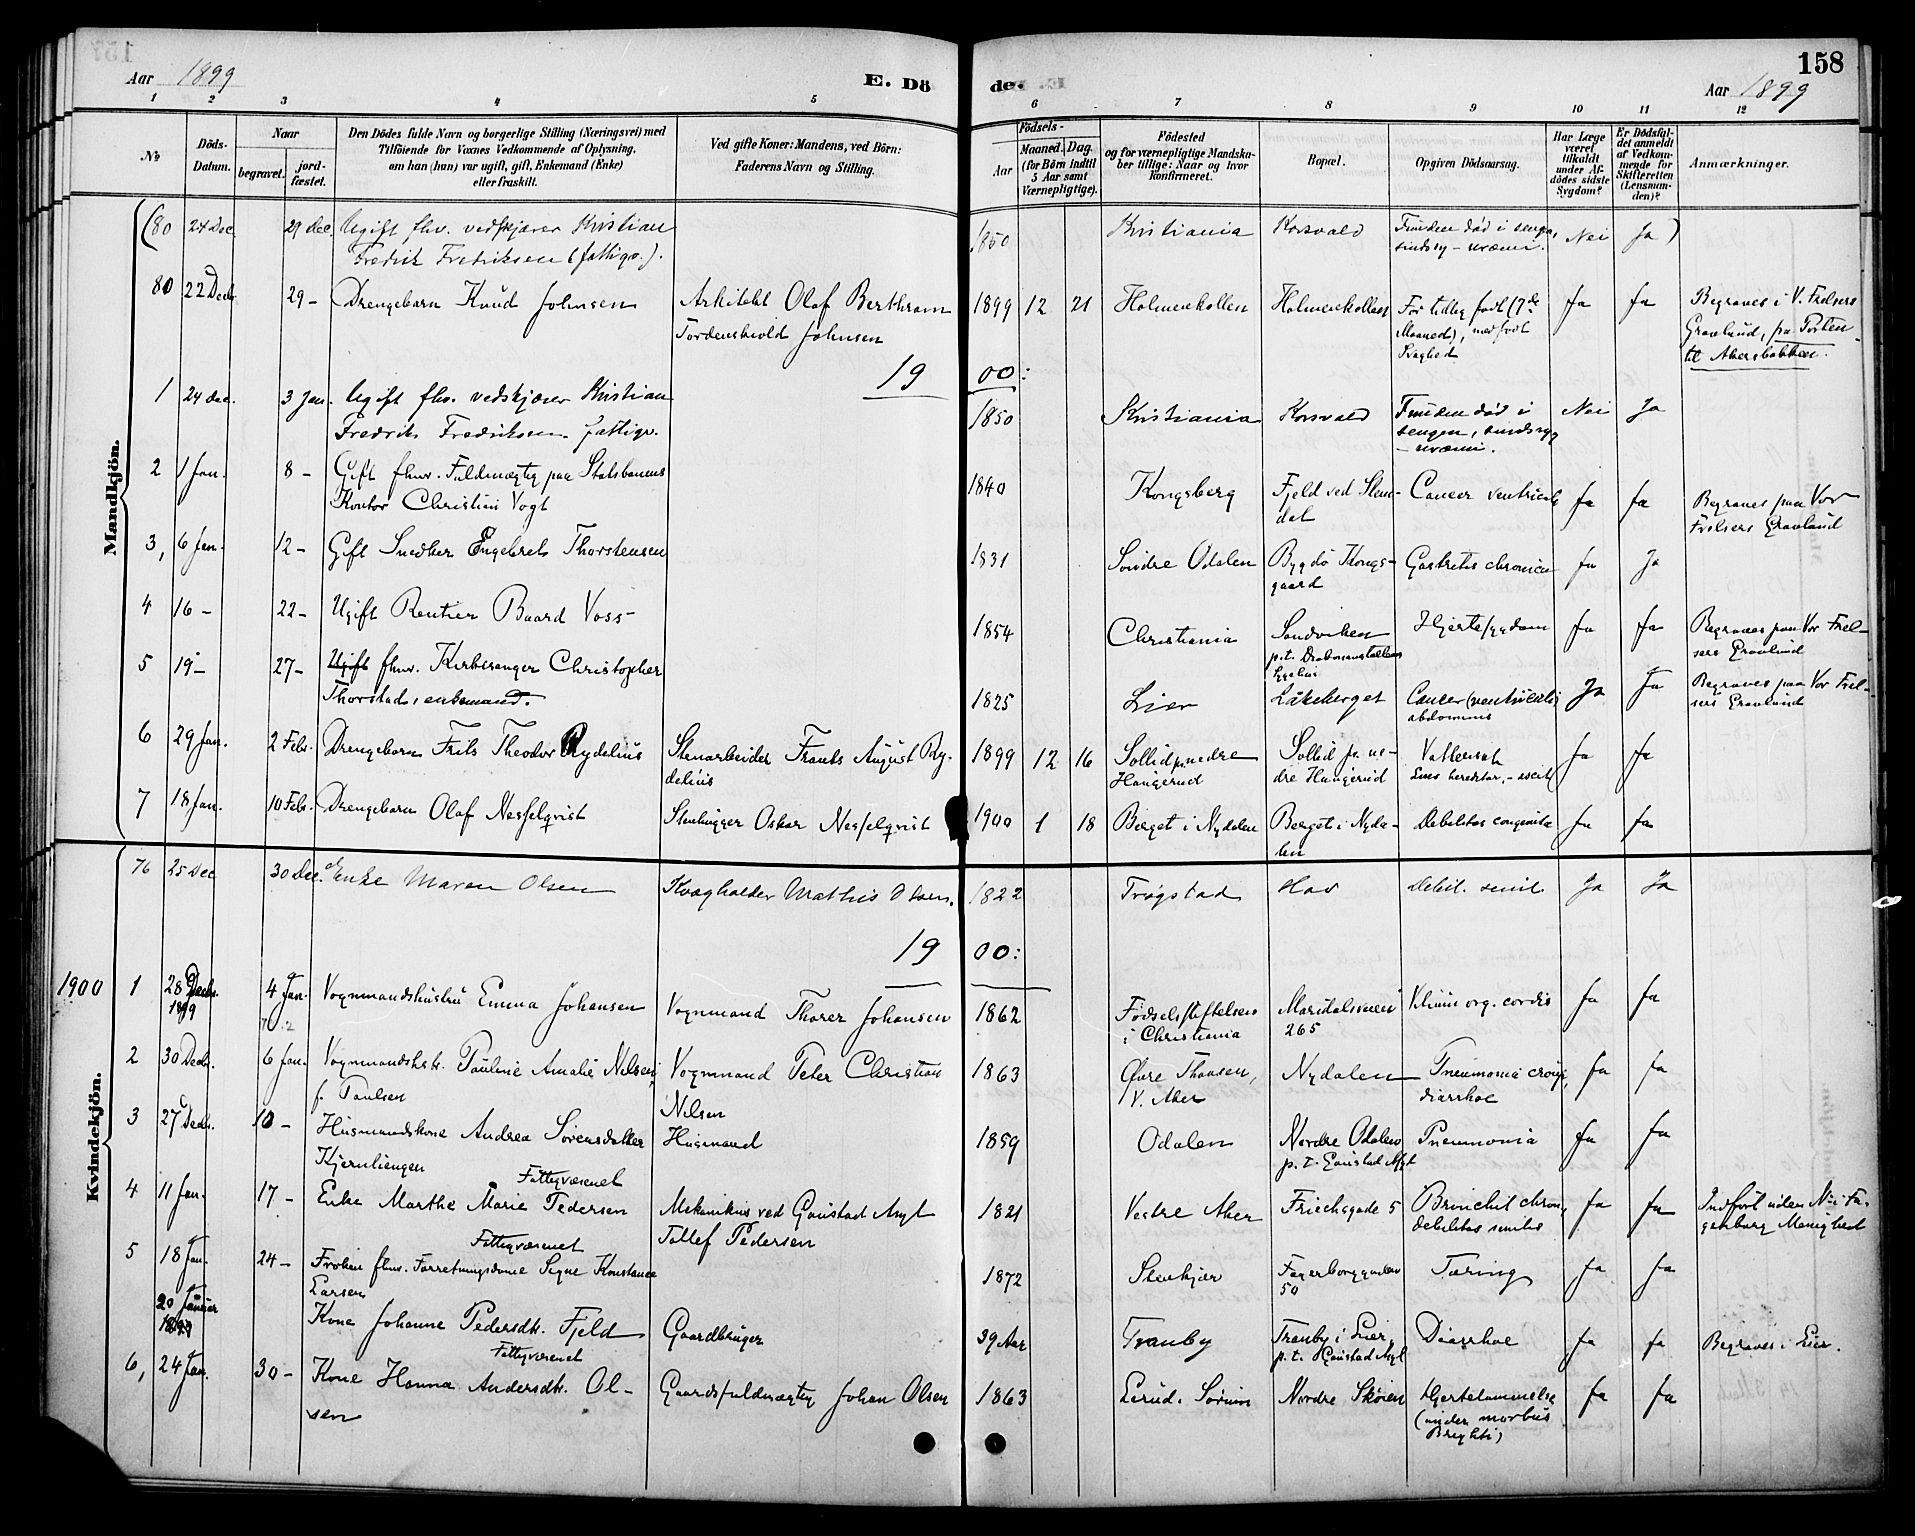 158
Aar 1899
E. Dö
de.
Aar 1899
1 2 3 4 5 6 7 8 9 10 11 12
No
Döds-
Datum.
Naar
begravet.
jord-
fæstet.
Den Dödes fulde Navn og borgerlige Stilling (Næringsvei) med
Tilföiende for Voxnes Vedkommende af Oplysning,
om han (hun) var ugift, gift, Enkemand (Enke)
eller fraskilt.
Ved gifte Koner: Mandens, ved Börn:
Faderens Navn og Stilling.
Födsels-
Aar
Maaned. Dag.
(for Börn indtil
5 Aar samt
Værnepligtige).
Födested
og for værnepligtige Mandska-
ber tillige: Naar og hvor
konfirmeret.
Bopæl.
Opgiven Dödsaarsag.
Har Læge
været
tilkaldt
under Af-
dödes sidste
Sygdom?
Er Dödsfal-
det anmeldt
af Vedkom-
mende for
Skifteretten
(Lensman-
den)?
Anmærkninger.
Mandkjön.
(80 24 Dec. 29 dec. Ugift fhv. vedskjærer Kristian 1850 Kristiania Korsvald Funden død i senga, Nei Ja)
Fredrik Fredriksen (fattigv.). sindssyg - uræmi.
80 22 Decbr. 29 - Drengebarn Knud Johnsen Arkitekt Olaf Berthram 1899 12 21 Holmenkollen Holmenkollen For tidlig født (7de Ja Ja Begraves i V. Frelsers
Tordenskiold Johnsen Maaned), medfødt Gravlund, paa Porten
Svaghed til Akersbakken.
1900:
1 24 dec. 3 Jan. Ugift fhv. vedskjærer Kristian 1850 Kristiania Korsvald Funden død i Nei Ja
Fredrik Fredriksen. fattigv. sengen, sindssyg
- uræmi.
2 1 Jan. 8 - Gift fhnv. Fuldmægtig paa Statsbanens 1840 Kongsberg Fjeld ved Slem- Cancer ventriculi Ja Ja Begraves paa Vor
Kontor Christian Vogt dal Frelsers Gravlund
3, 6 Jan. 12 - Gift Snedker Engebret Thorstensen 1831 Søndre Odalen Bygdø Kongs- Gastritis chronica Ja Ja
gaard
4 16 - 22 - Ugift Rentier Baard Voss - 1854 Christiania Sandviken Hjertesygdom Ja Ja Begraves paa Vor Frel-
p.t. sers Gravlund
5 19 - 27 - Ugift fhnv. Kirkesanger Christopher 1825 Lier Låkeberget Cancer (ventriculi) Ja Ja Begraves paa Vor Frel-
Thorstad, enkemand. abdominis sers Gravlund
6 29 Jan. 2 Febr. Drengebarn Frits Theodor Rydelius Stenarbeider Frants August Ry- 1899 12 16 Sollid p. nedre Sollid p. ne- Vattersot Ja Ja
delius Haugerud dre Haugerud Lues hereditar. - ascit
7 18 Jan. 10 Febr. Drengebarn Olaf Nesselqvist Stenhugger Oskar Nesselqvist 1900 1 18 Berget i Nydalen Berget i Nyda- Debilitas congenita Ja Ja
len
Kvindekjön.
76 25 Dec 30 Dec. Enke Maren Olsen Kvægholder Mathis Olsen. 1822 Trøgstad Hav Debil. senil. Ja Ja
1900:
1900 1 28 Decbr. 4 Jan. Vognmandshustru Emma Johansen Vognmand Thorer Johansen 1862 Fødselsstiftelsen Maridalsveien Vitium org. cordis Ja Ja
1899 i Christiania 265
2 30 Decbr. 6 Jan. Vognmandshstr. Pauline Amalie Nilsen, Vognmand Peter Christian 1863 Øvre Thaasen, Nydalen Pneumonia croup., Ja Ja
f. Paulsen Nilsen V. Aker diarrhoe
3 27 Decbr. 10 - Husmandskone Andrea Sørensdatter Husmand 1859 Odalen Nordre Odalen Pneumonia Ja Ja
Kjernliengen p.t. Gaustad Asyl
Fattigvæsenet
4 11 Jan. 17 - Enke Marthe Marie Pedersen Mekanikus ved Gaustad Asyl 1821 Vestre Aker Friechsgade 5 Bronchit chron., Ja Ja Indført uden No i Fa-
Tollef Pedersen debilitas senilis gerborg Menighed
Fattigvæsenet
5 18 Jan. 24 - Frøken fhnv. Forretningsdame Signe Konstance 1872 Stenkjær Fagerborggaden Tæring Ja Ja
Larsen 50
20 Januar Kone Johanne Pedersdtr. Fjeld Gaardbruger 39 Aar Tranby Tranby i Lier, Diarrhoe Ja Ja Begraves i Lier.
1899 p.t. Gaustad Asyl
Fattigvæsenet
6, 24 Jan. 30 - Kone Hanna Andersdtr. Ol- Gaardsfuldmægtig Johan Olsen 1863 Lerud. Sørum Nordre Skøien Hjertelammelse Ja Ja
sen (under morbus
Brightii)